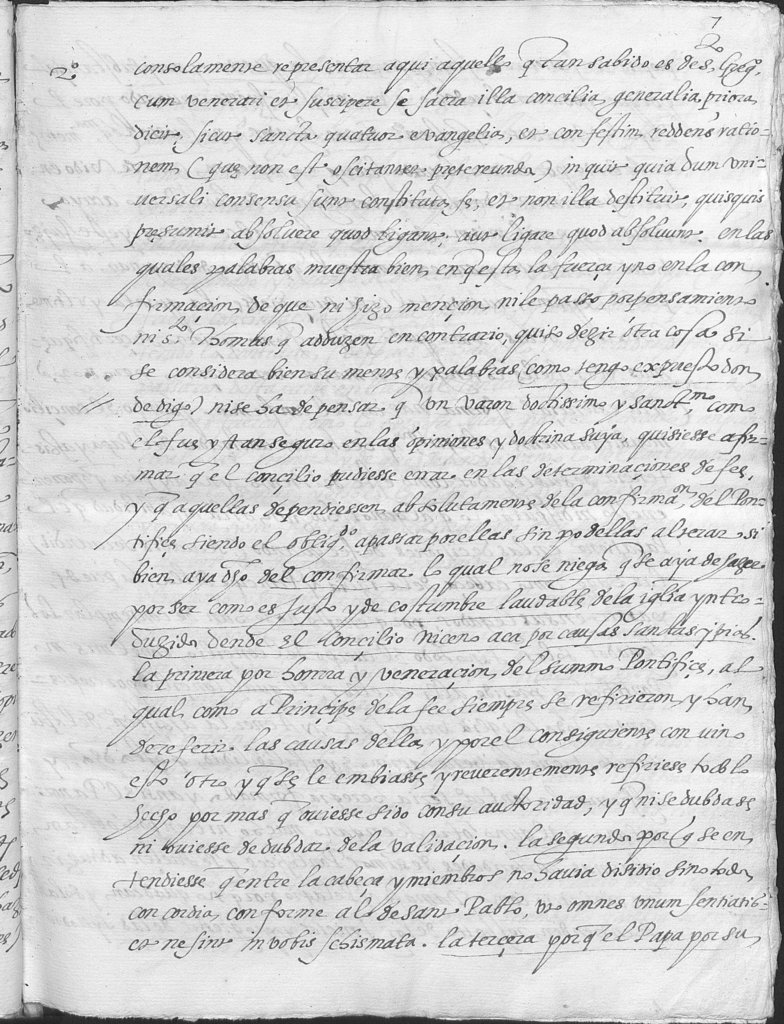 7
2
2º consolamente representar aqui aquello q̃ tan sabido es de S. Greg.º
cum venerari et suscipere se sacra illa concilia generalia priora
dicit, sicut sancta quatuor evangelia, et confestim reddens ratio-
nem (quę non est oscitanter prętereunda) inquit quia dum uni-
versali consensu sunt constituta, se, et non illa destituit, quisquis
pręsumit absolvere quod ligant, aut ligare quod absolvunt. en las
quales palabras muestra bien en q̃ esta la fuerça y no en la con
firmacion, de que ni hizo mencion, ni le passo por pensamiento
ni s.to Thomas q̃ adduzen en contrario, quiso dezir otra cosa si
se considera bien su mente y palabras (como tengo expresso don
de digo) ni se ha de pensar q̃ un varon doctissimo y sanctmo, como
el fue y tan seguro en las opiniones y doctrina suya, quisiesse afir-
mar q̃ el concilio pudiesse errar en las determinaciones de fee,
y q̃ aquellas dependiessen absolutamente de la confirmaon del Pon-
tifice siendo el obligdo a passar por ellas sin podellas alterar si
bien aya dho del confirmar lo qual no se niega q̃ se aya de hazer
por ser como es justo y de costumbre laudable de la iglia yntro-
duzida dende el Concilio niceno aca por causas sanctas y pias.
la primera por honrra y veneracion del summo Pontifice, al
qual como a Principe de la fee siempre se refirieron y han
de referir las causas della, y por el consiguiente convino
esto otro y q̃ se le embiasse y reverentemente refiriese todo lo
hecho por mas q̃ oviesse sido con su autoridad, y q̃ ni se dubdase
ni oviesse de dubdar de la validacion. la segunda porq̃ se en
tendiesse q̃ entre la cabeça y miembros no havia disidio sino toda
concordia conforme al de sant Pablo, ut omnes unum sentiatis
et ne sint in vobis schismata. la tercera porq̃ el Papa por su